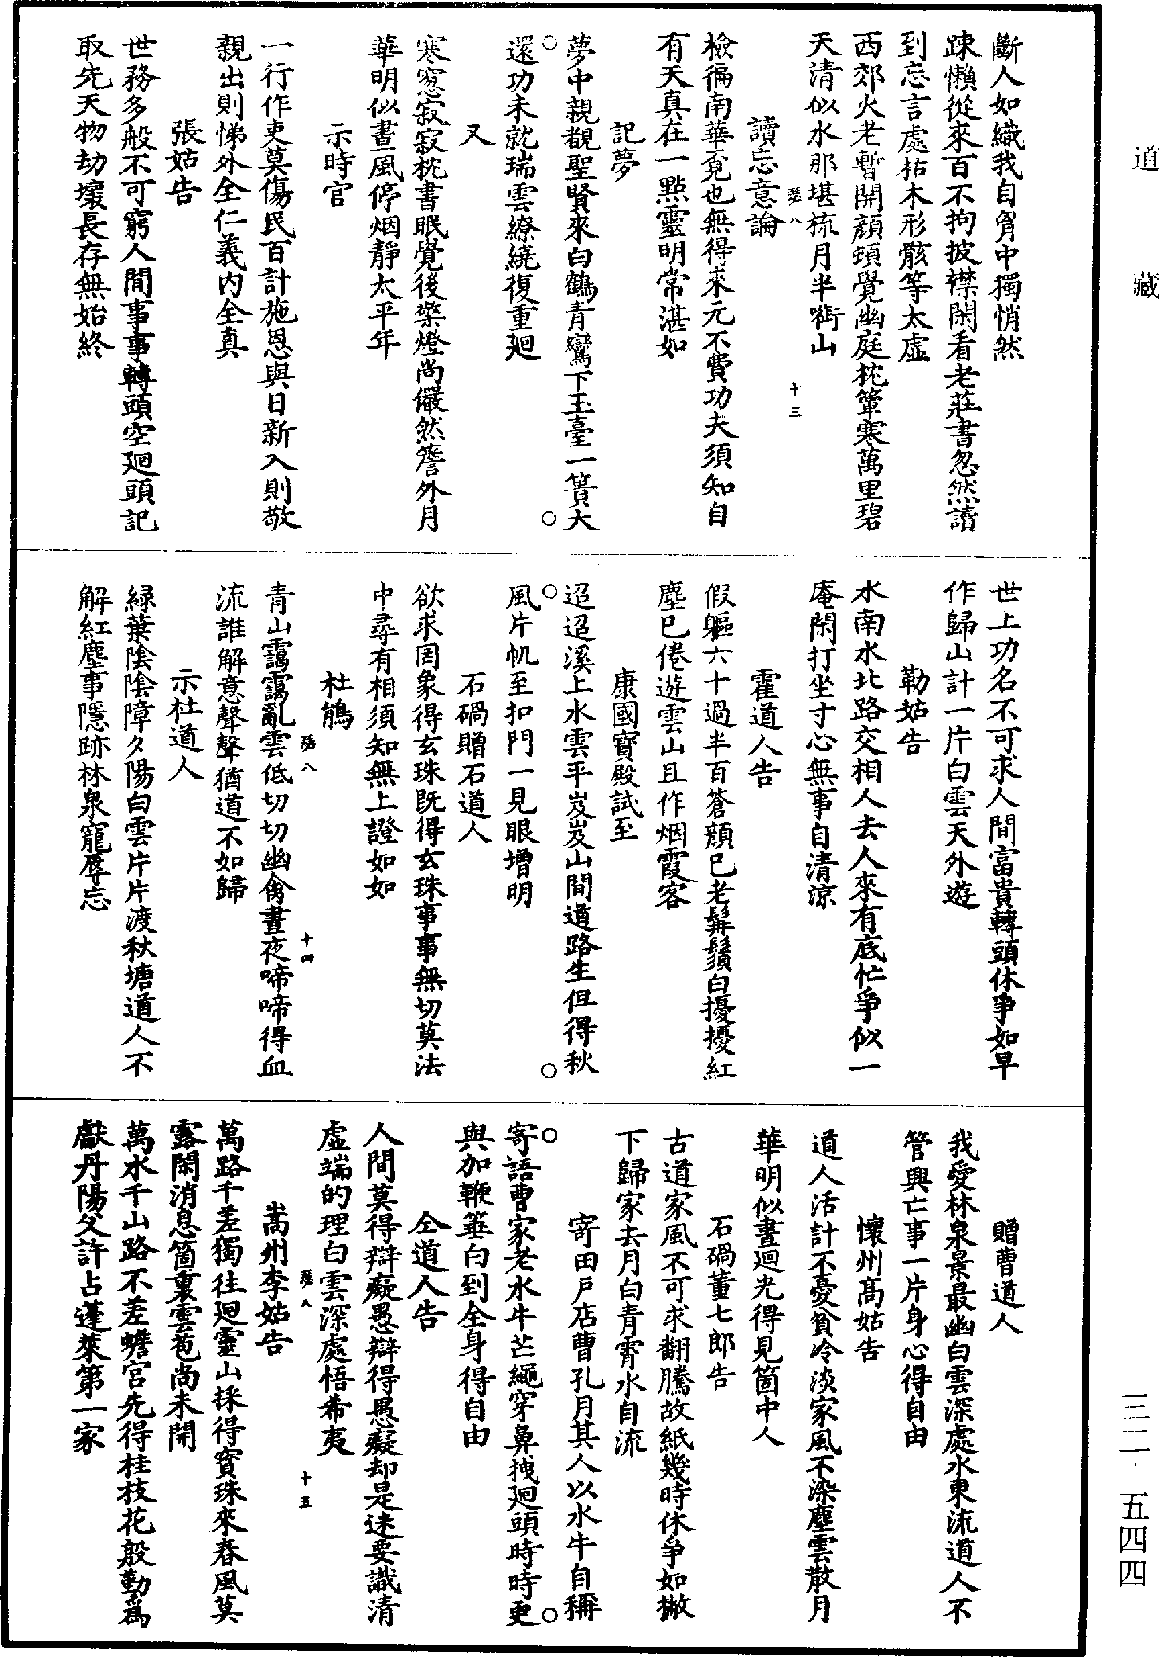 道藏
斷人如織我自胷中獨悄然
踈懶從來百不拘披襟閑看老莊書忽然讀
到忘言處拈木形骸等太虛
西郊火老暫開顏頓覺幽庭枕簟寒萬里碧
天清似水那堪掛月半銜山
讀忘意論
檢徧南華竟也無得來元不費功夫須知自
有天真在一點靈明常湛如
記夢
夢中親覩聖賢來白鶴青鸞下玉臺一簣大
還功未就瑞雲繚繞復重廻
又
寒窓寂寂枕書眠覺後熒燈尚儼然簷外月
華明似晝風停烟靜太平年
示時官
一行作吏莫傷民百計施恩與日新入則敬
親出則悌外全仁義內全真
張姑告
世務多般不可窮人間事事轉頭空廻頭記
取先天物劫壞長存無始終
世上功名不可求人間富貴轉頭休爭如早
作歸山計一片白雲天外遊
勒姑告
水南水北路交相人去人來有底忙爭似一
庵閑打坐寸心無事自清涼
霍道人告
假軀六十過半百蒼顏已老鬅鬚白擾擾紅
塵已倦遊雲山且作烟霞客
康國寶殿試至
迢迢溪上水雲平岌岌山間道路生但得秋
風片帆至扣門一見眼增明
石堝贈石道人
欲求罔象得玄珠旣得玄珠事事無切莫法
中尋有相須知無上證如如
杜鵑
青山靄靄亂雲低切切幽禽晝夜啼啼得血
流誰解意聲聲猶道不如歸
示杜道人
綠葉陰陰障夕陽白雲片片渡秋塘道人不
解紅塵事隱跡林泉寵辱忘
贈曹道人
我愛林泉景最幽白雲深處水東流道人不
管興亡事一片身心得自由
懷州高姑告
道人活計不憂貧冷淡家風不染塵雲散月
華明似晝廻光得見箇中人
石堝董七郎告
古道家風不可求翻騰故紙幾時休爭如撇
下歸家去月白青霄水自流
寄田戶店曹孔月其人以水牛自稱
寄語曹家老水牛芒繩穿鼻拽廻頭時時更
與加鞭箠白到全身得自由
仝道人告
人間莫得辯癡愚辯得愚癡却是迷要識清
虛端的理白雲深處悟希夷
嵩州李姑告
萬路千差獨往廻靈山採得寶珠來春風莫
露閑消息箇裏雲苞尚未開
萬水千山路不差蟾宮先得桂枝花殷勤爲
獻丹陽父許占蓬萊第一家
十三
十四
十五
三二·五四四